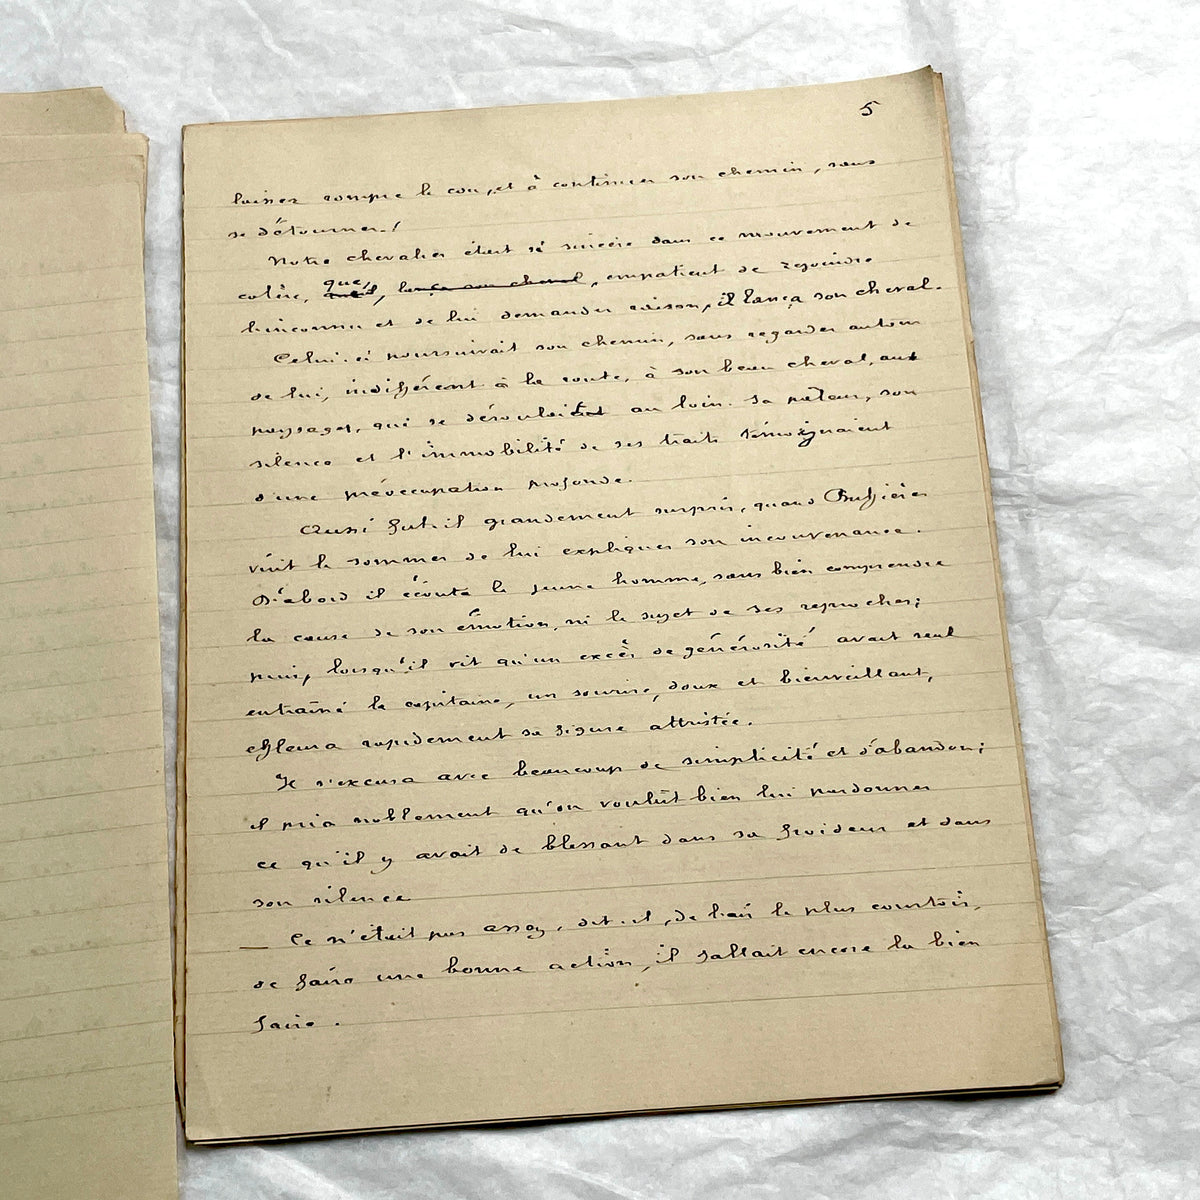 5
laisser rompre le cou, et à continuer son chemin, sans
se détourner !
Notre chevalier était si sincère dans ce mouvement de
colère, que, lança son cheval, empatient de rejoindre
l'inconnu et de lui demander raison, il lança son cheval.
Celui-ci poursuivait son chemin, sans regarder autour
de lui, indifférent à la route, à son beau cheval, aux
paysages, qui se déroulaient au loin. Sa pâleur, son
silence et l'immobilité de ses traits témoignaient
d'une préoccupation profonde.
Aussi fut-il grandement surpris, quand Buffières
vint le sommer de lui expliquer son inconvenance.
D'abord il écouta le jeune homme, sans bien comprendre
la cause de son émotion, ni le sujet de ses reproches;
puis, lorsqu'il vit qu'un excès de générosité avait seul
entraîné le capitaine, un sourire, doux et bienveillant,
effleura rapidement sa figure attristée.
Il s'excusa avec beaucoup de simplicité et d'abandon;
il pria noblement qu'on voulût bien lui pardonner
ce qu'il y avait de blessant dans sa froideur et dans
son silence
— Ce n'était pas assez, dit-il, de l'air le plus courtois,
de faire une bonne action, il fallait encore la bien
faire.